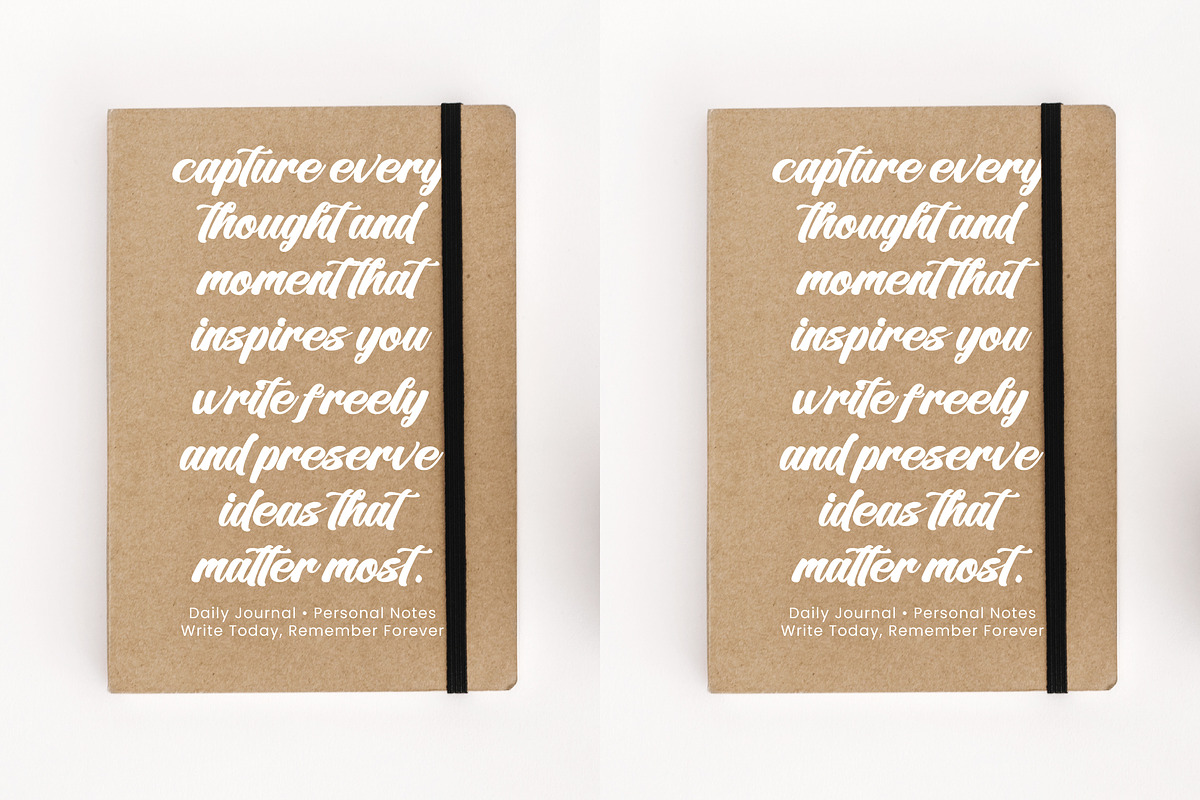 capture every
thought and
moment that
inspires you
write freely
and preserve
ideas that
matter most.
Daily Journal • Personal Notes
Write Today, Remember Forever
capture every
thought and
moment that
inspires you
write freely
and preserve
ideas that
matter most.
Daily Journal • Personal Notes
Write Today, Remember Forever